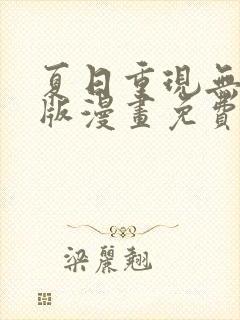 夏日重現無
版漫畫免費
梁麗翹